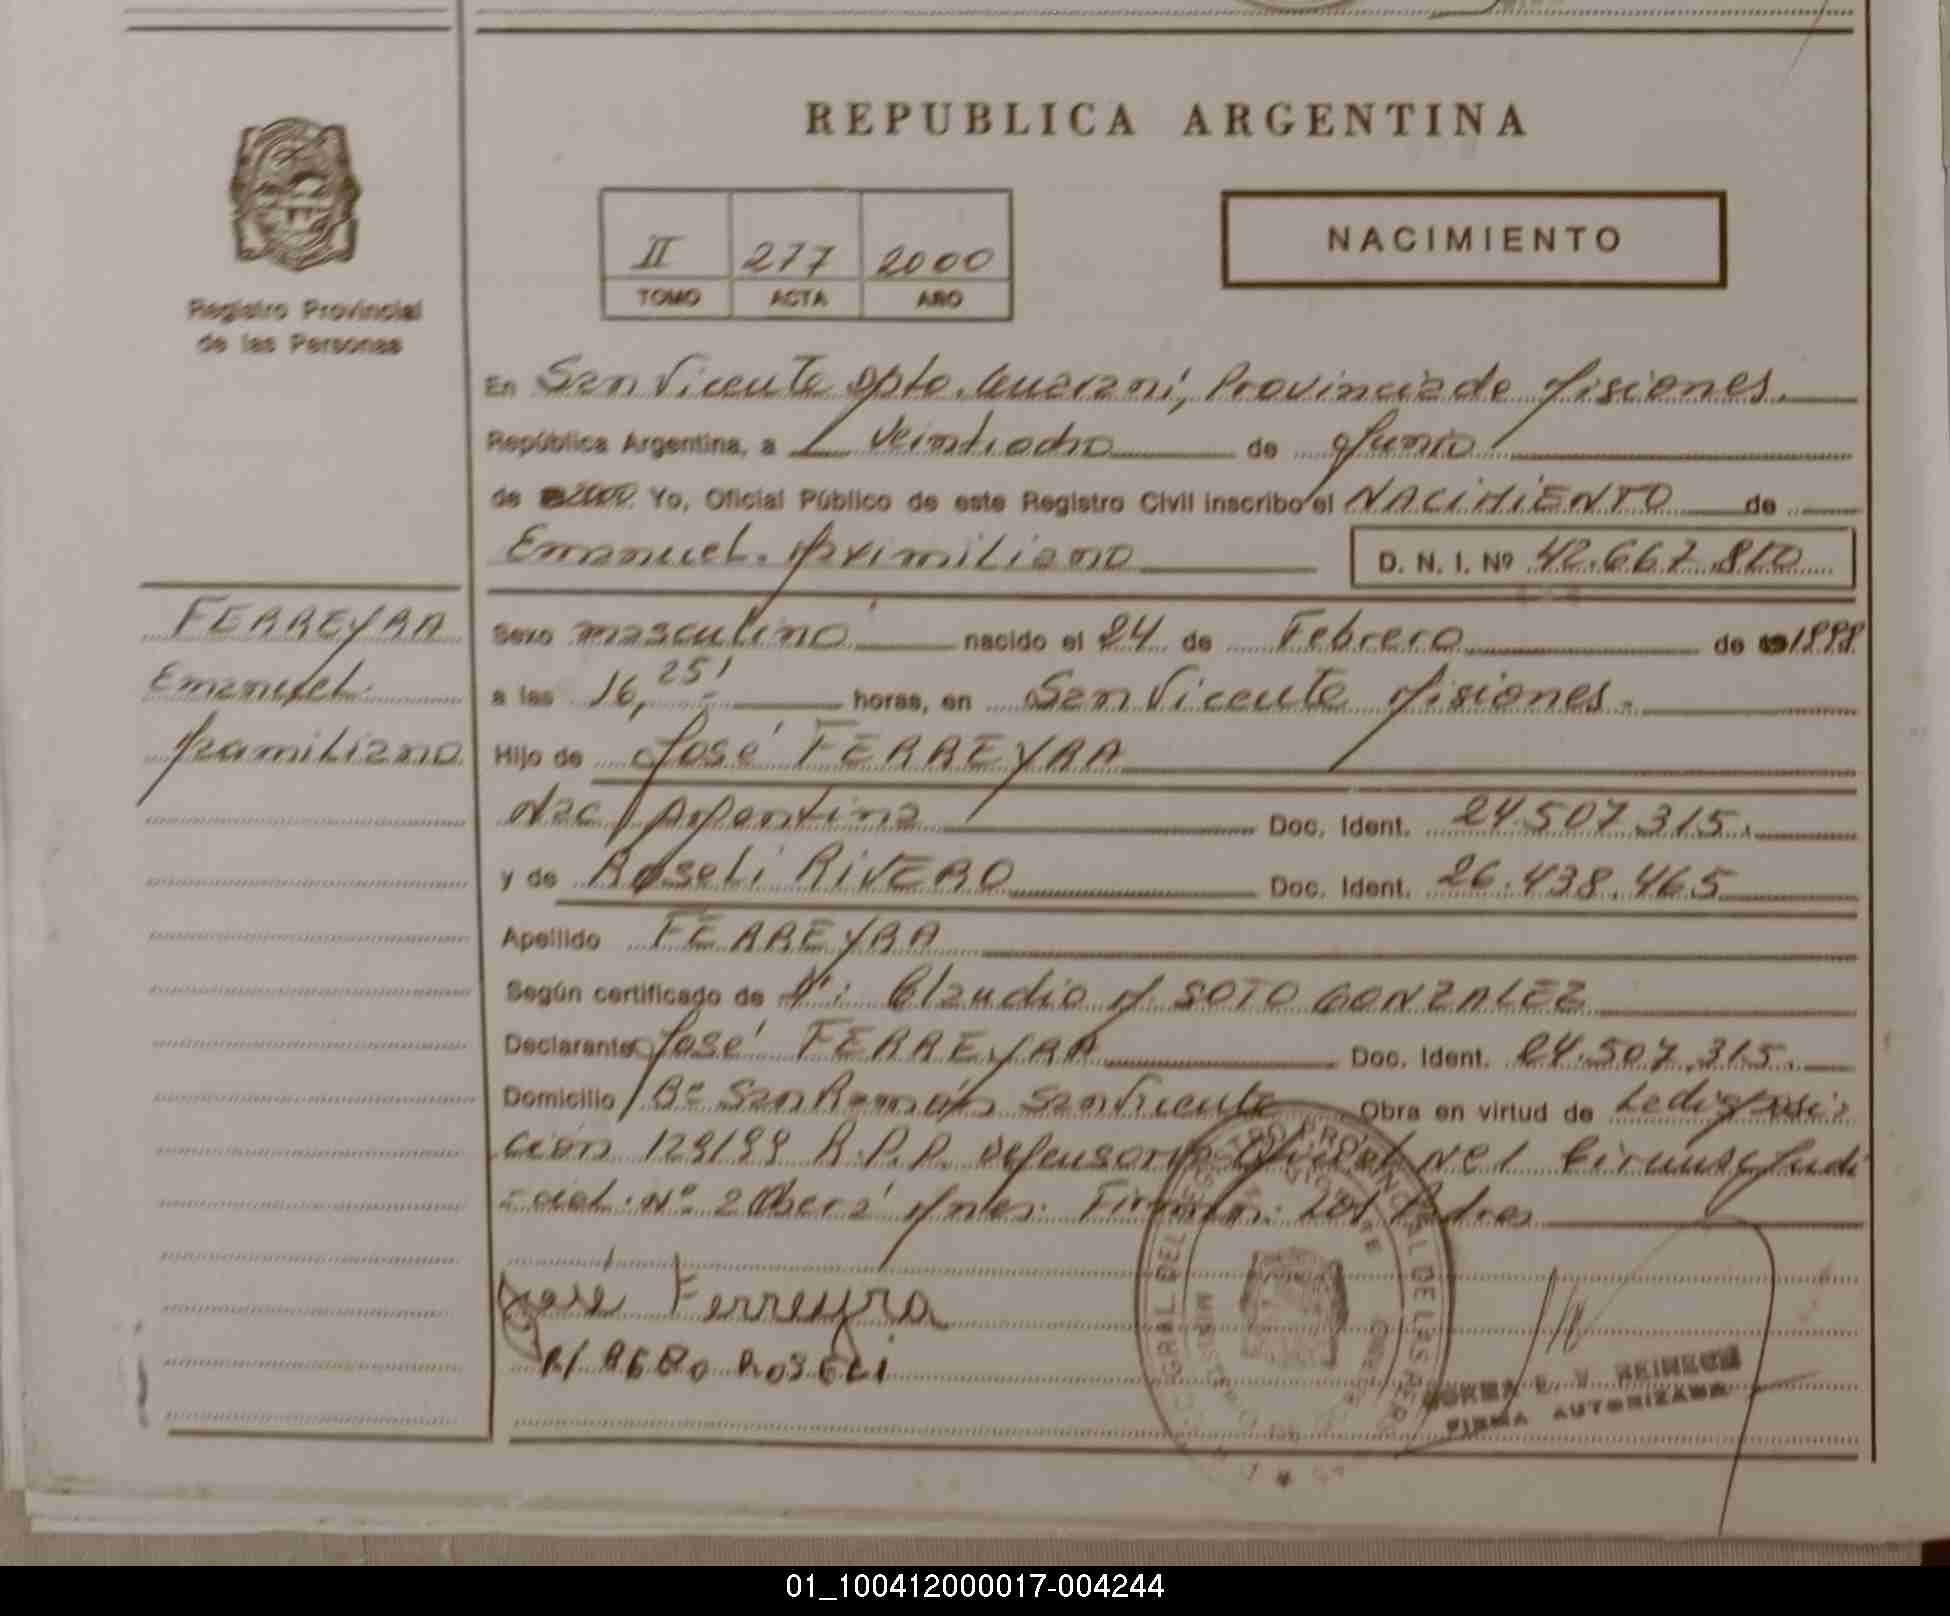 REPUBLICA ARGENTINA
II 277 2000
TOMO ACTA AÑO
NACIMIENTO
Registro Provincial
de las Personas
En San Vicente Dpto. Guaraní, Provincia de Misiones.
República Argentina, a veintiocho de Junio
de 2000 Yo, Oficial Público de este Registro Civil inscribo el NACIMIENTO de
Emanuel Maximiliano
D. N. I. Nº 42.667.810
FERREYRA
Emanuel
Sexo masculino nacido el 24 de Febrero de 1999
a las 16,25' horas, en San Vicente Misiones.
Hijo de José FERREYRA
Nac/ Argentina Doc. Ident. 24.507.315.
y de Roseli RIVERO Doc. Ident. 26.438.465
Apellido FERREYRA
Según certificado de Claudio M SOTO GONZALEZ
Declarante José FERREYRA Doc. Ident. 24.507.315.
Domicilio Bº San Ramón San Vicente Obra en virtud de
ción 129/99 R.P.P. Defensoría Oficial Nº 1
cial Nº 2 Oberá Mnes. Firman: los Padres
José Ferreyra
RIBERO ROSELI
FIRMA AUTORIZADA
01_100412000017-004244